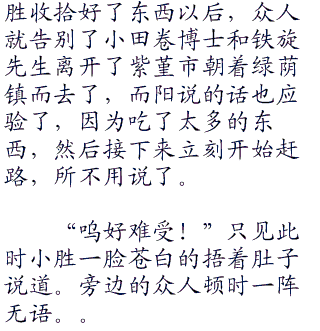 胜收拾好了东西以后，众人
就告别了小田卷博士和铁旋
先生离开了紫堇市朝着绿荫
镇而去了，而阳说的话也应
验了，因为吃了太多的东
西，然后接下来立刻开始赶
路，所不用说了。
“呜好难受！”只见此
时小胜一脸苍白的捂着肚子
说道。旁边的众人顿时一阵
无语。。